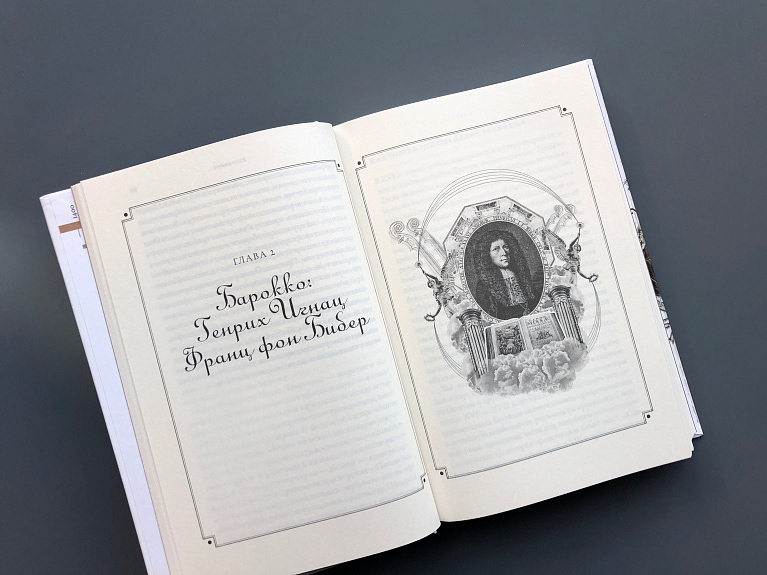 ГЛАВА 2
Барокко:
Генрих Игнац
Франц фон Бибер